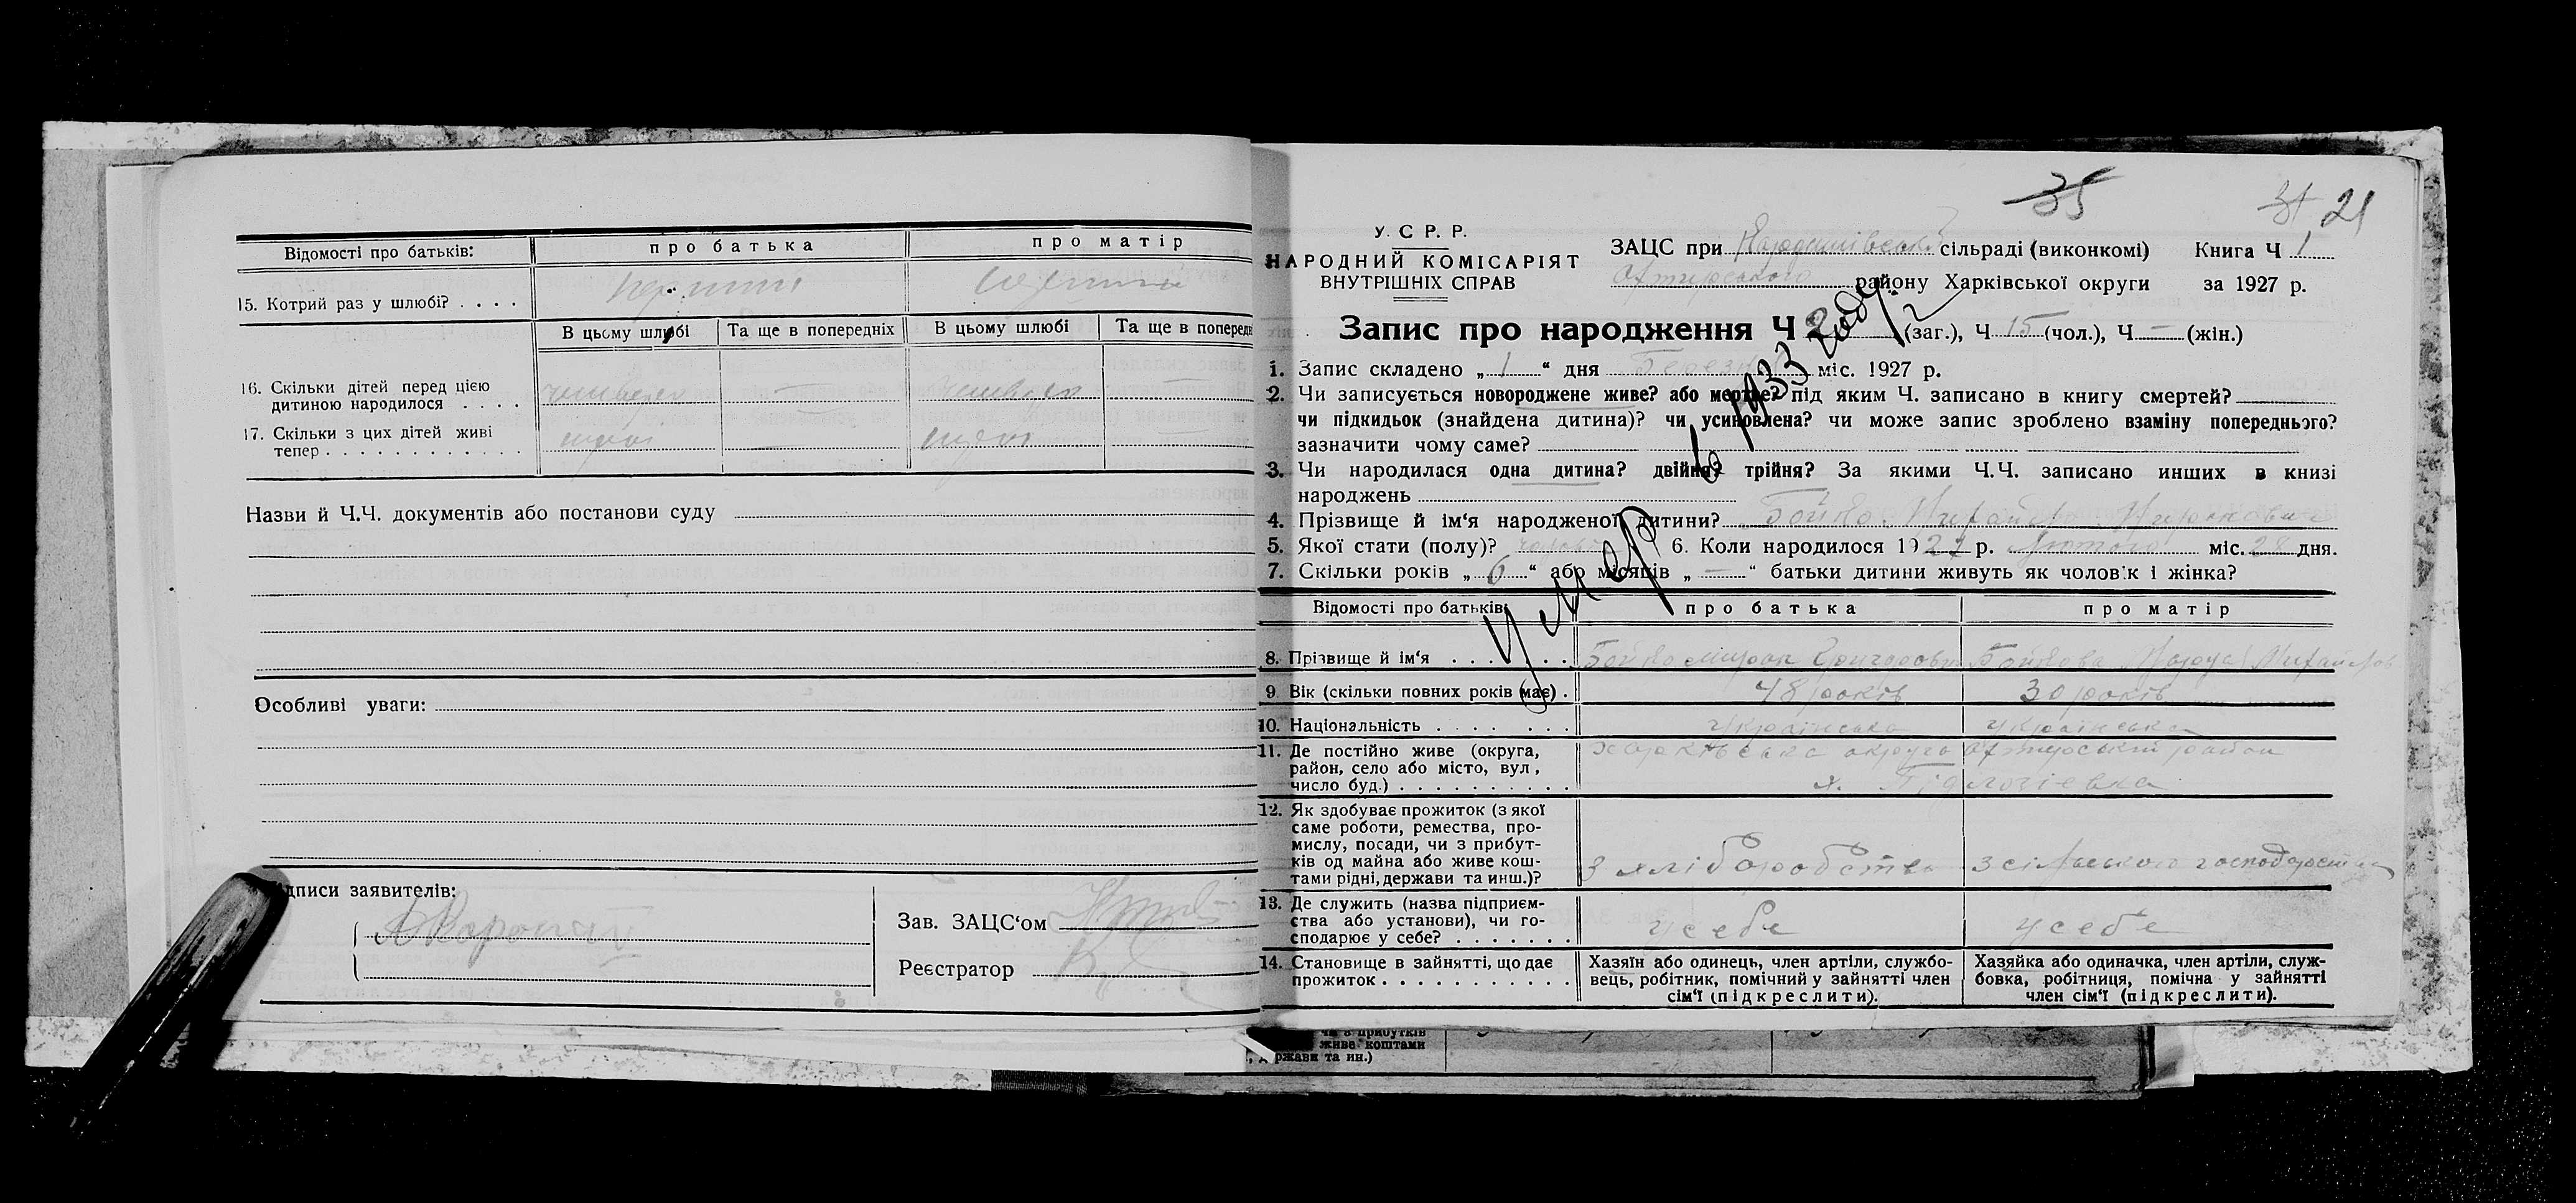 Відомості про батьків: про батька про матір
15. Котрий раз у шлюбі? . . . .
В цьому шлюбі Та ще в попередніх В цьому шлюбі Та ще в поперед
16. Скільки дітей перед цією
дитиною народилося . . . . четверо — четверо —
17. Скільки з цих дітей живі
тепер . . . . . . . . . . . . троє — троє —
Назви й Ч.Ч. документів або постанови суду
Особливі уваги:
дписи заявителів:
Зав. ЗАЦС‘ом
Реєстратор
35
21
У. С. Р. Р.
НАРОДНИЙ КОМІСАРІЯТ
ВНУТРІШНІХ СПРАВ
ЗАЦС при сільраді (виконкомі) Книга Ч 1
Охтирського району Харківської округи за 1927 р.
Запис про народження Ч (заг.), Ч 15 (чол.), Ч. — (жін.)
1. Запис складено „ 1 “ дня Березня міс. 1927 р.
2. Чи записується новороджене живе? або мертве? під яким Ч. записано в книгу смертей?
чи підкидьок (знайдена дитина)? чи усиновлена? чи може запис зроблено взаміну попереднього?
зазначити чому саме?
3. Чи народилася одна дитина? двійня? трійня? За якими Ч.Ч. записано инших в книзі
народжень
4. Прізвище й ім‘я народженої дитини? Бойко Михайло Миронович
5. Якої стати (полу)? 6. Коли народилося 1927 р. Лютого міс. 28 дня.
7. Скільки років „ 6 “ або місяців „ — “ батьки дитини живуть як чолов‘к і жінка?
Умер в 1933 году
Відомості про батьків: про батька про матір
8. Прізвище й ім‘я . . . . . Бойко Мирон Бойкова
9. Вік (скільки повних років має) . 48 років 30 років
10. Національність . . . . . . . українська українська
11. Де постійно живе (округа,
район, село або місто, вул.,
число буд.) . . . . . . . . . . Харківська округа Охтирський район
12. Як здобуває прожиток (з якої
саме роботи, ремества, про-
мислу, посади, чи з прибут-
ків од майна або живе кош-
тами рідні, держави та инш.)? з хліборобства з сільського господарства
13. Де служить (назва підприєм-
ства або установи), чи го-
сподарює у себе? . . . . . . . у себе у себе
14. Становище в зайнятті, що дає
прожиток . . . . . . . . . . .
Хазяїн або одинець, член артіли, службо-
вець, робітник, помічний у зайнятті член
сім‘ї (підкреслити).
Хазяйка або одиначка, член артіли, служ-
бовка, робітниця, помічна у зайнятті
член сім‘ї (підкреслити).
чи з прибутків
живе коштами
ржави та ин.)